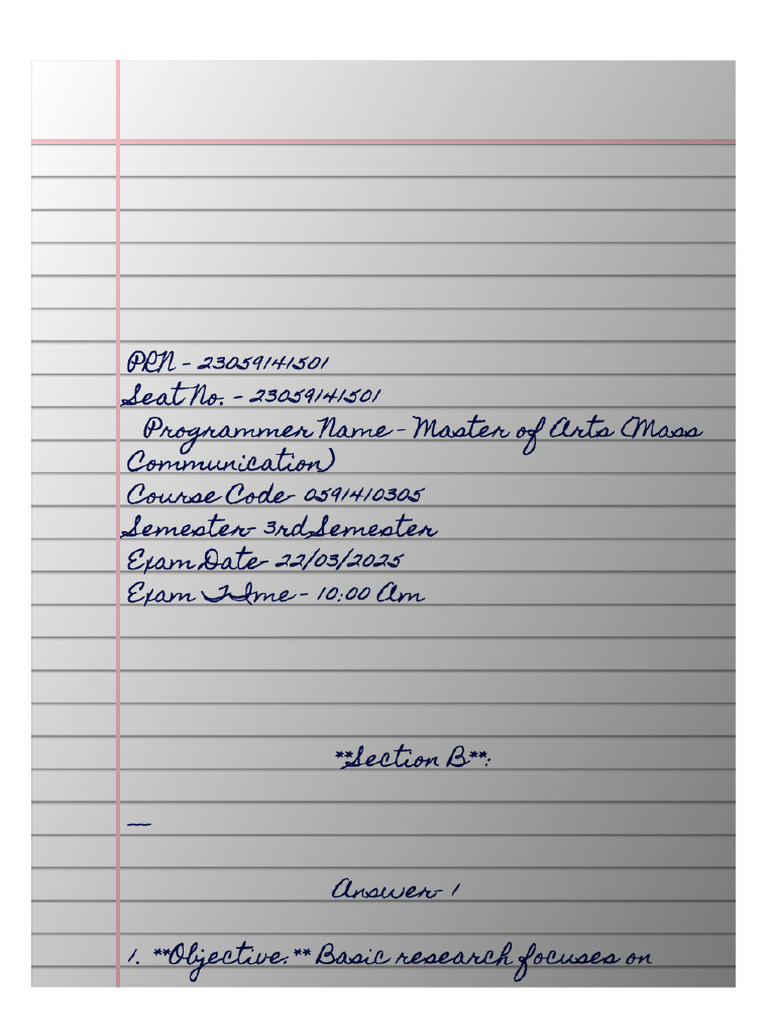 PRN - 23059141501
Seat No. - 23059141501
Programmer Name - Master of Arts (Mass
Communication)
Course Code- 0591410305
Semester- 3rd Semester
Exam Date- 22/03/2025
Exam TIme - 10:00 Am
**Section B**:
—
Answer- 1
1. **Objective:** Basic research focuses on